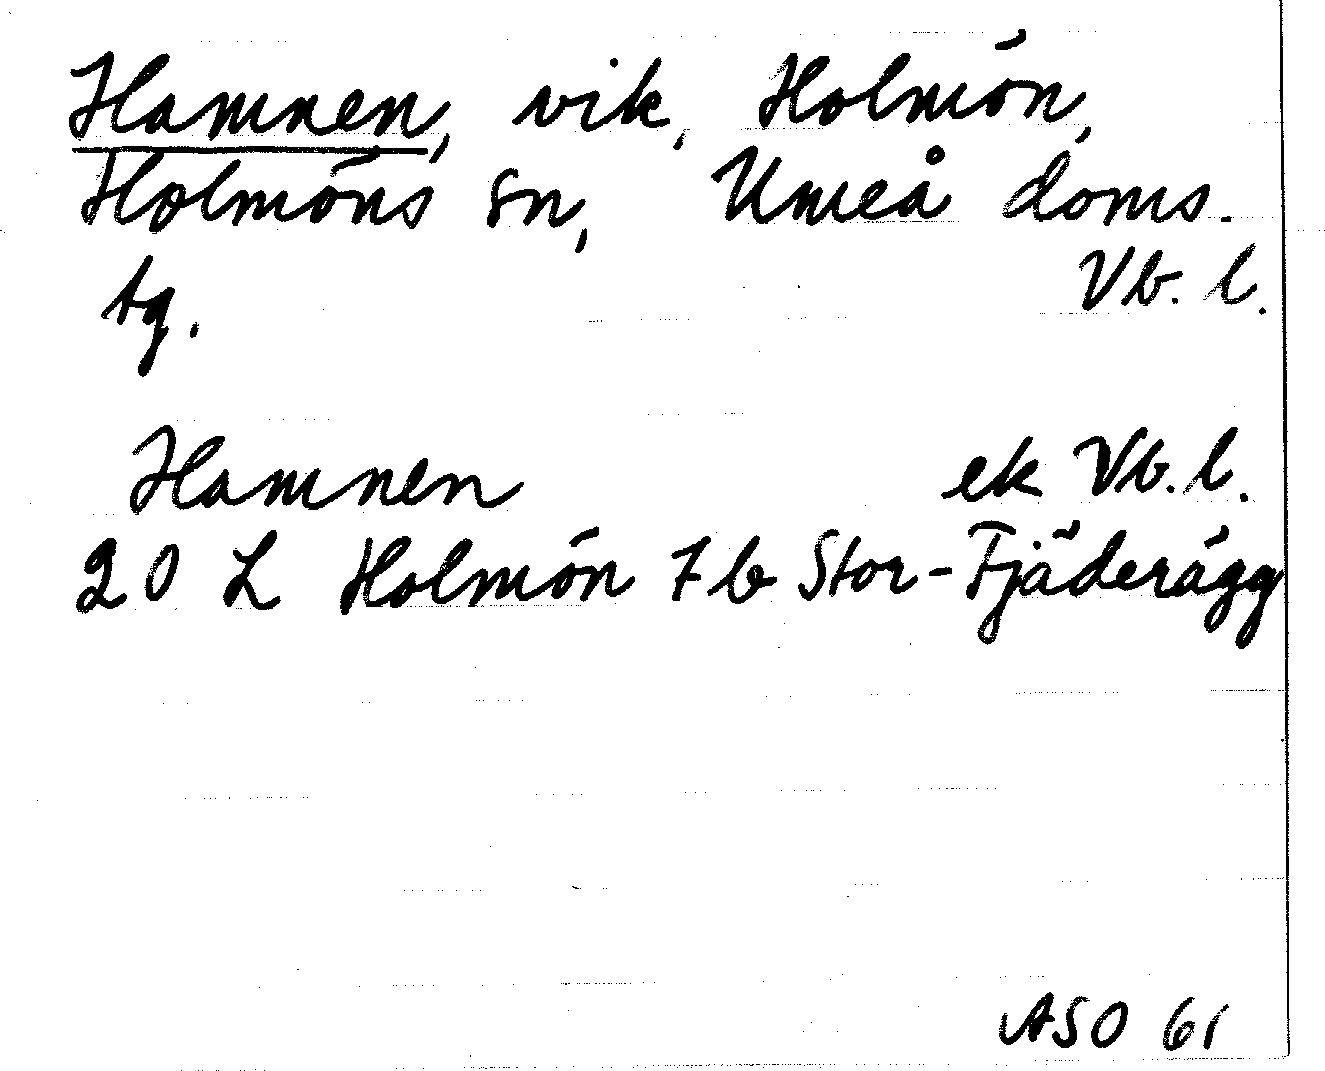 Hamnen, vik, Holmön,
Holmöns sn, Umeå doms.
tg. Vb. l.
Hamnen ek Vb. l.
20 L Holmön 7 b Stor-Fjäderägg
ASO 61